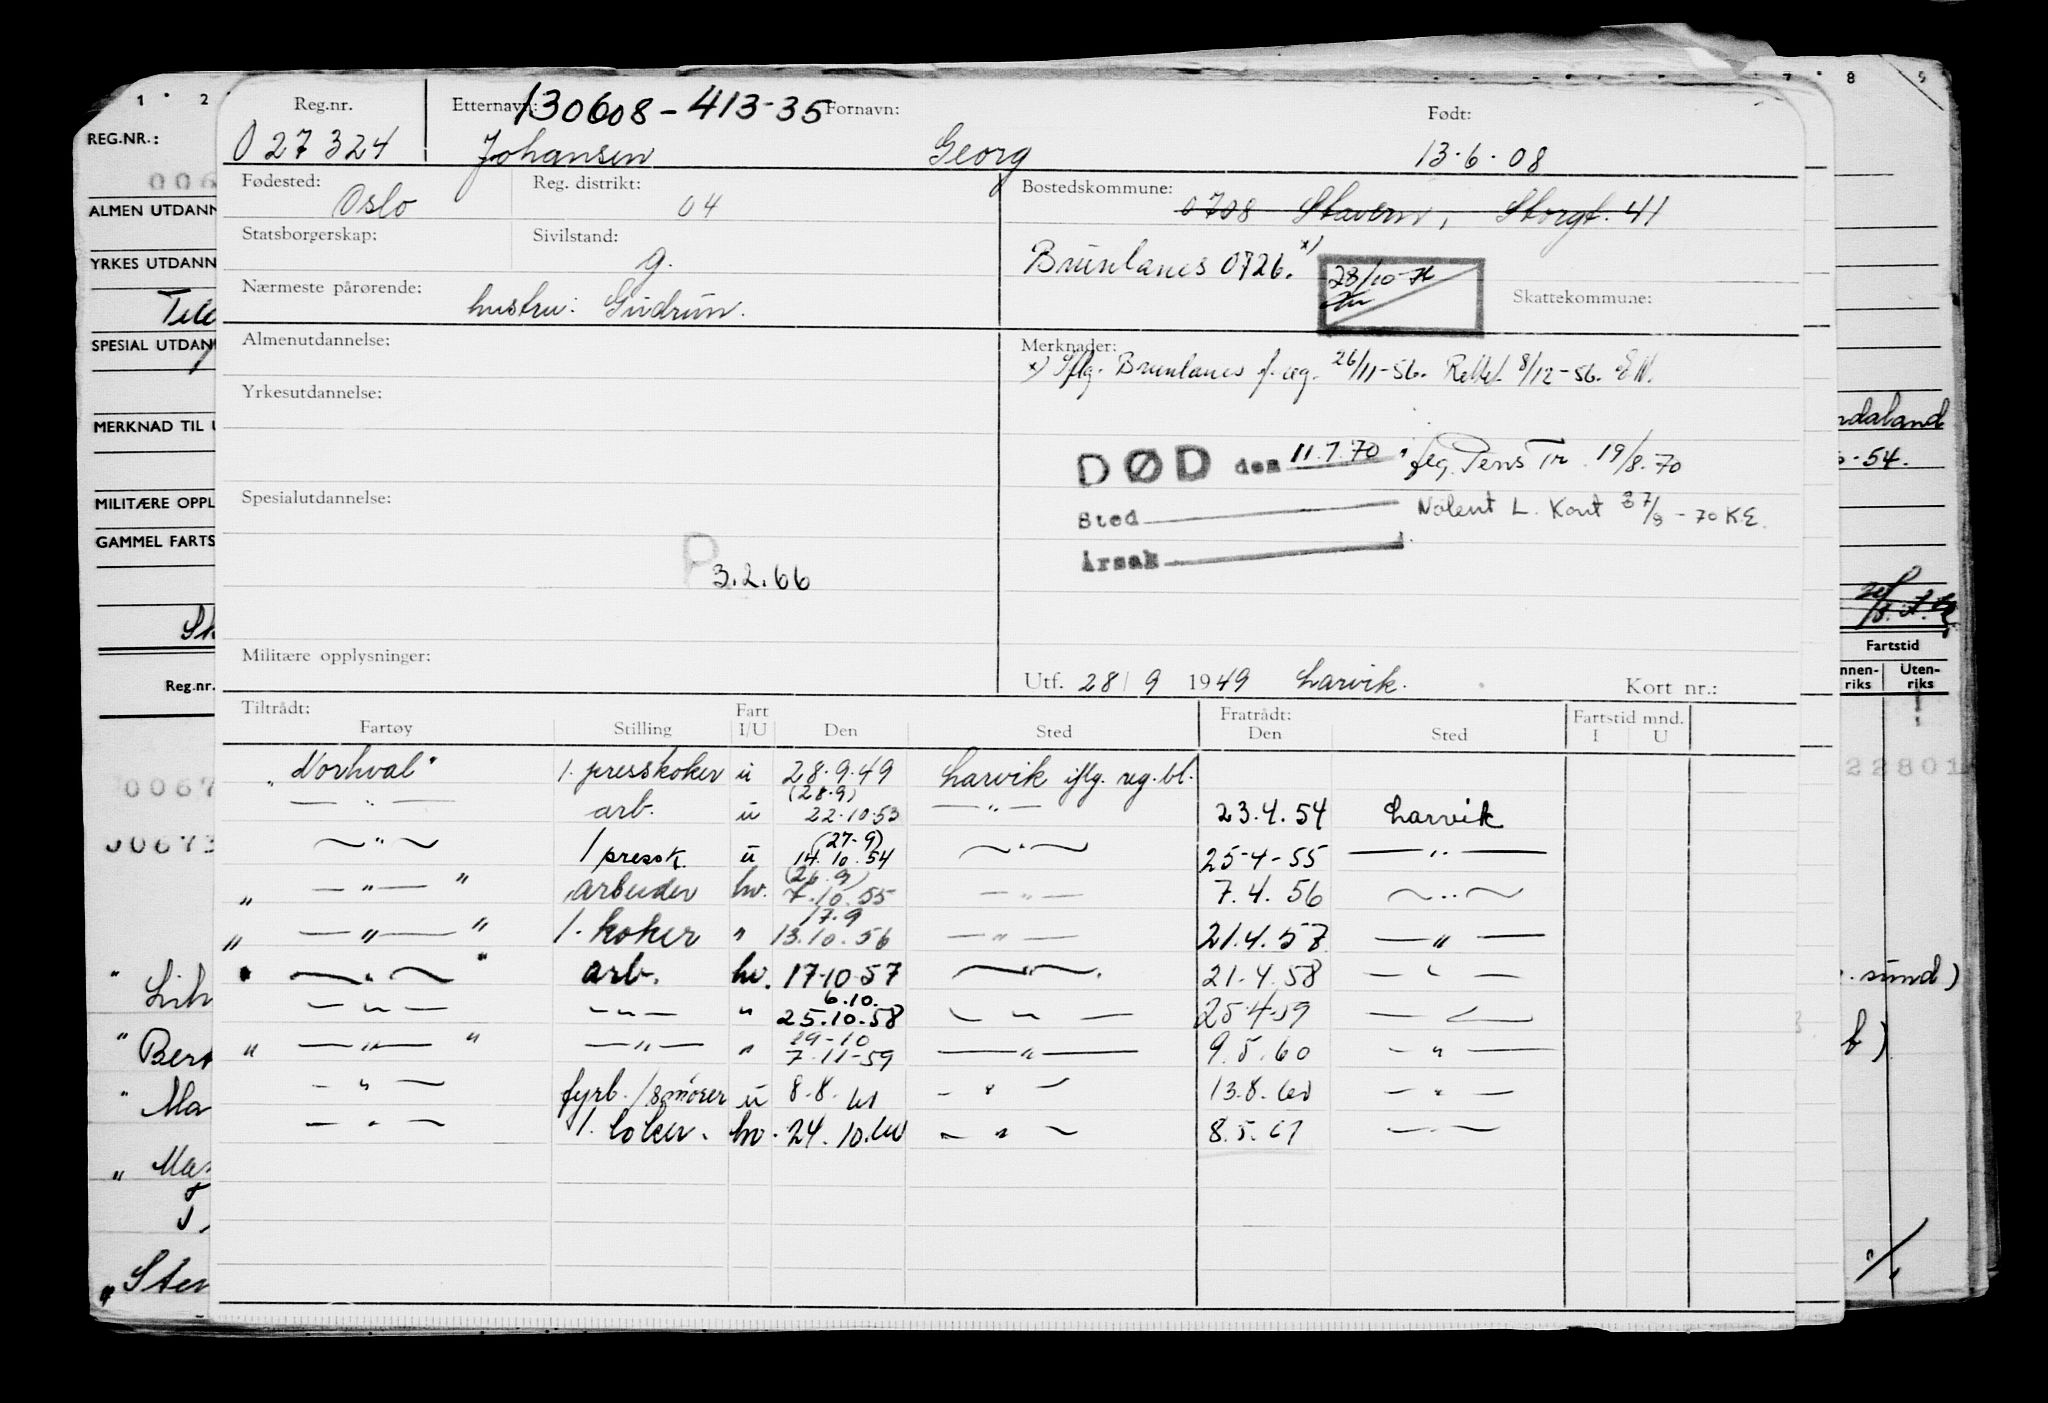 1 · 2 7 · 8 9
REG.NR.:
006
ALMEN UTDANN
YRKES UTDANN
SPESIAL UTDAN
MERKNAD TIL U
MILITÆRE OPPL
GAMMEL FARTS
Reg.nr.
0067
00673
Reg.nr. Etternavn: 130608-413-35 Fornavn: Født:
027324 Johansen Georg 13.6.08
Fødested: Oslo Reg. distrikt: 04 Bostedskommune: 0708 Stavern, Storgt. 41
Statsborgerskap: Sivilstand: g. Brunlanes 0726. x)
28/10-71
Nærmeste pårørende: hustru: Gudrun. Skattekommune:
Almenutdannelse: Merknader:
x) Iflg. Brunlanes f. reg. 26/11-56. Rettet 8/12-56. EN.
Yrkesutdannelse:
DØD den 11.7.70 flg. Pens Tr. 19/8.70
Spesialutdannelse:
Sted L. Kont
70 K.E.
Årsak
P 3.2.66
Militære opplysninger: Utf. 28/9 1949 Larvik. Kort nr.:
Tiltrådt: Fratrådt: Fartstid mnd.
Fartøy Stilling Fart I/U Den Sted Den Sted I U
"Norhval" 1. presskoker u 28.9.49 Larvik iflg. reg.bl.
— " — arb. u (28.9) 22.10.53 — " — 23.4.54 Larvik
— " — 1 pressk. u (27-9) 14.10.54 — " — 25-4-55 — " —
" — " — " arbeider hv. (26.9) 7.10.55 — " — 7.4.56 — " —
" — " — " 1. koker " 17.9 13.10.56 — " — 21.4.57 — " —
" — " — " arb. hv. 17-10-57 — " — 21.4.58 — " —
— " — — " — " 6.10. 25.10.58 — " — 25-4-59 — " —
" — " — " — " — " 29-10 7.11-59 — " — 9.5.60 — " —
— " — fyrb./smører u 8.8.60 — " — 13.8.60 — " —
— " — 1. koker. hv. 24.10.60 — " — 8.5.61 — " —
rdaland
-54.
Fartstid
nnen-riks Uten-riks
22801
. sund)
b)